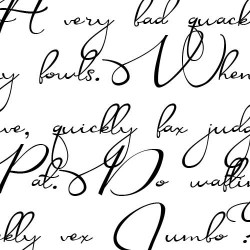 A very bad quack
y fowls. When
ve, quickly fax judg
Pat. Do waltz
kly vex Jumbo?